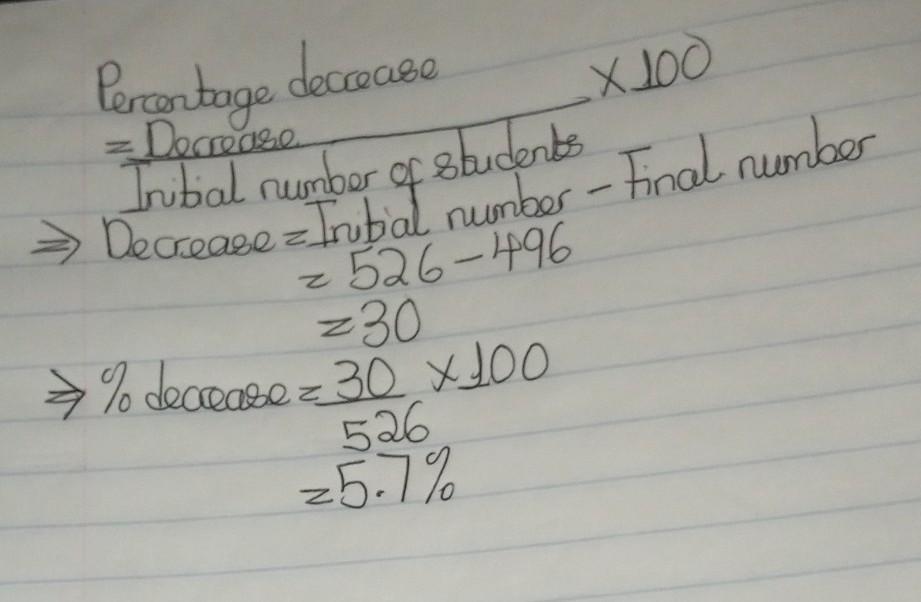 Percentage decrease
= Decrease × 100
Initial number of students
⇒ Decrease = Initial number - Final number
= 526 - 496
= 30
⇒ % decrease = 30 × 100
526
= 5.7%